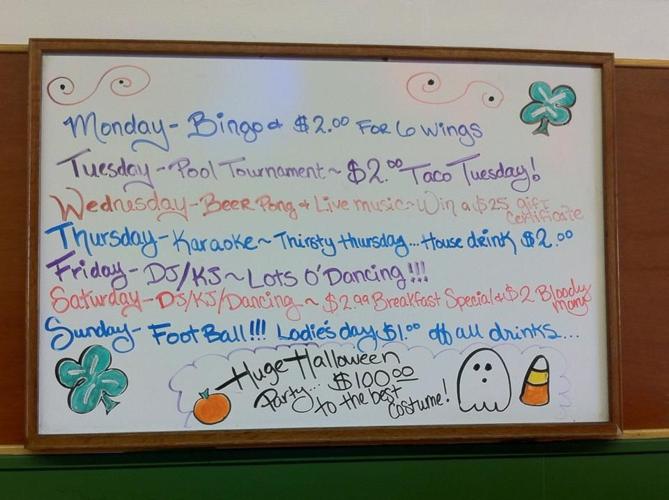 Monday- Bingo & $2.00 FOR 6 wings
Tuesday- Pool Tournament ~ $2.00 Taco Tuesday!
Wednesday- Beer Pong & Live music ~ Win a $25 gift certificate
Thursday- Karaoke ~ Thirsty thursday... House drink $2.00
Friday- DJ/KJ ~ Lots O'Dancing!!!
Saturday- DJ/KJ/Dancing ~ $2.99 Breakfast Special & $2 Bloody Marys
Sunday- FootBall!!! Ladie's day $1.00 off all drinks...
Huge Halloween
Party... $100.00
to the best costume!